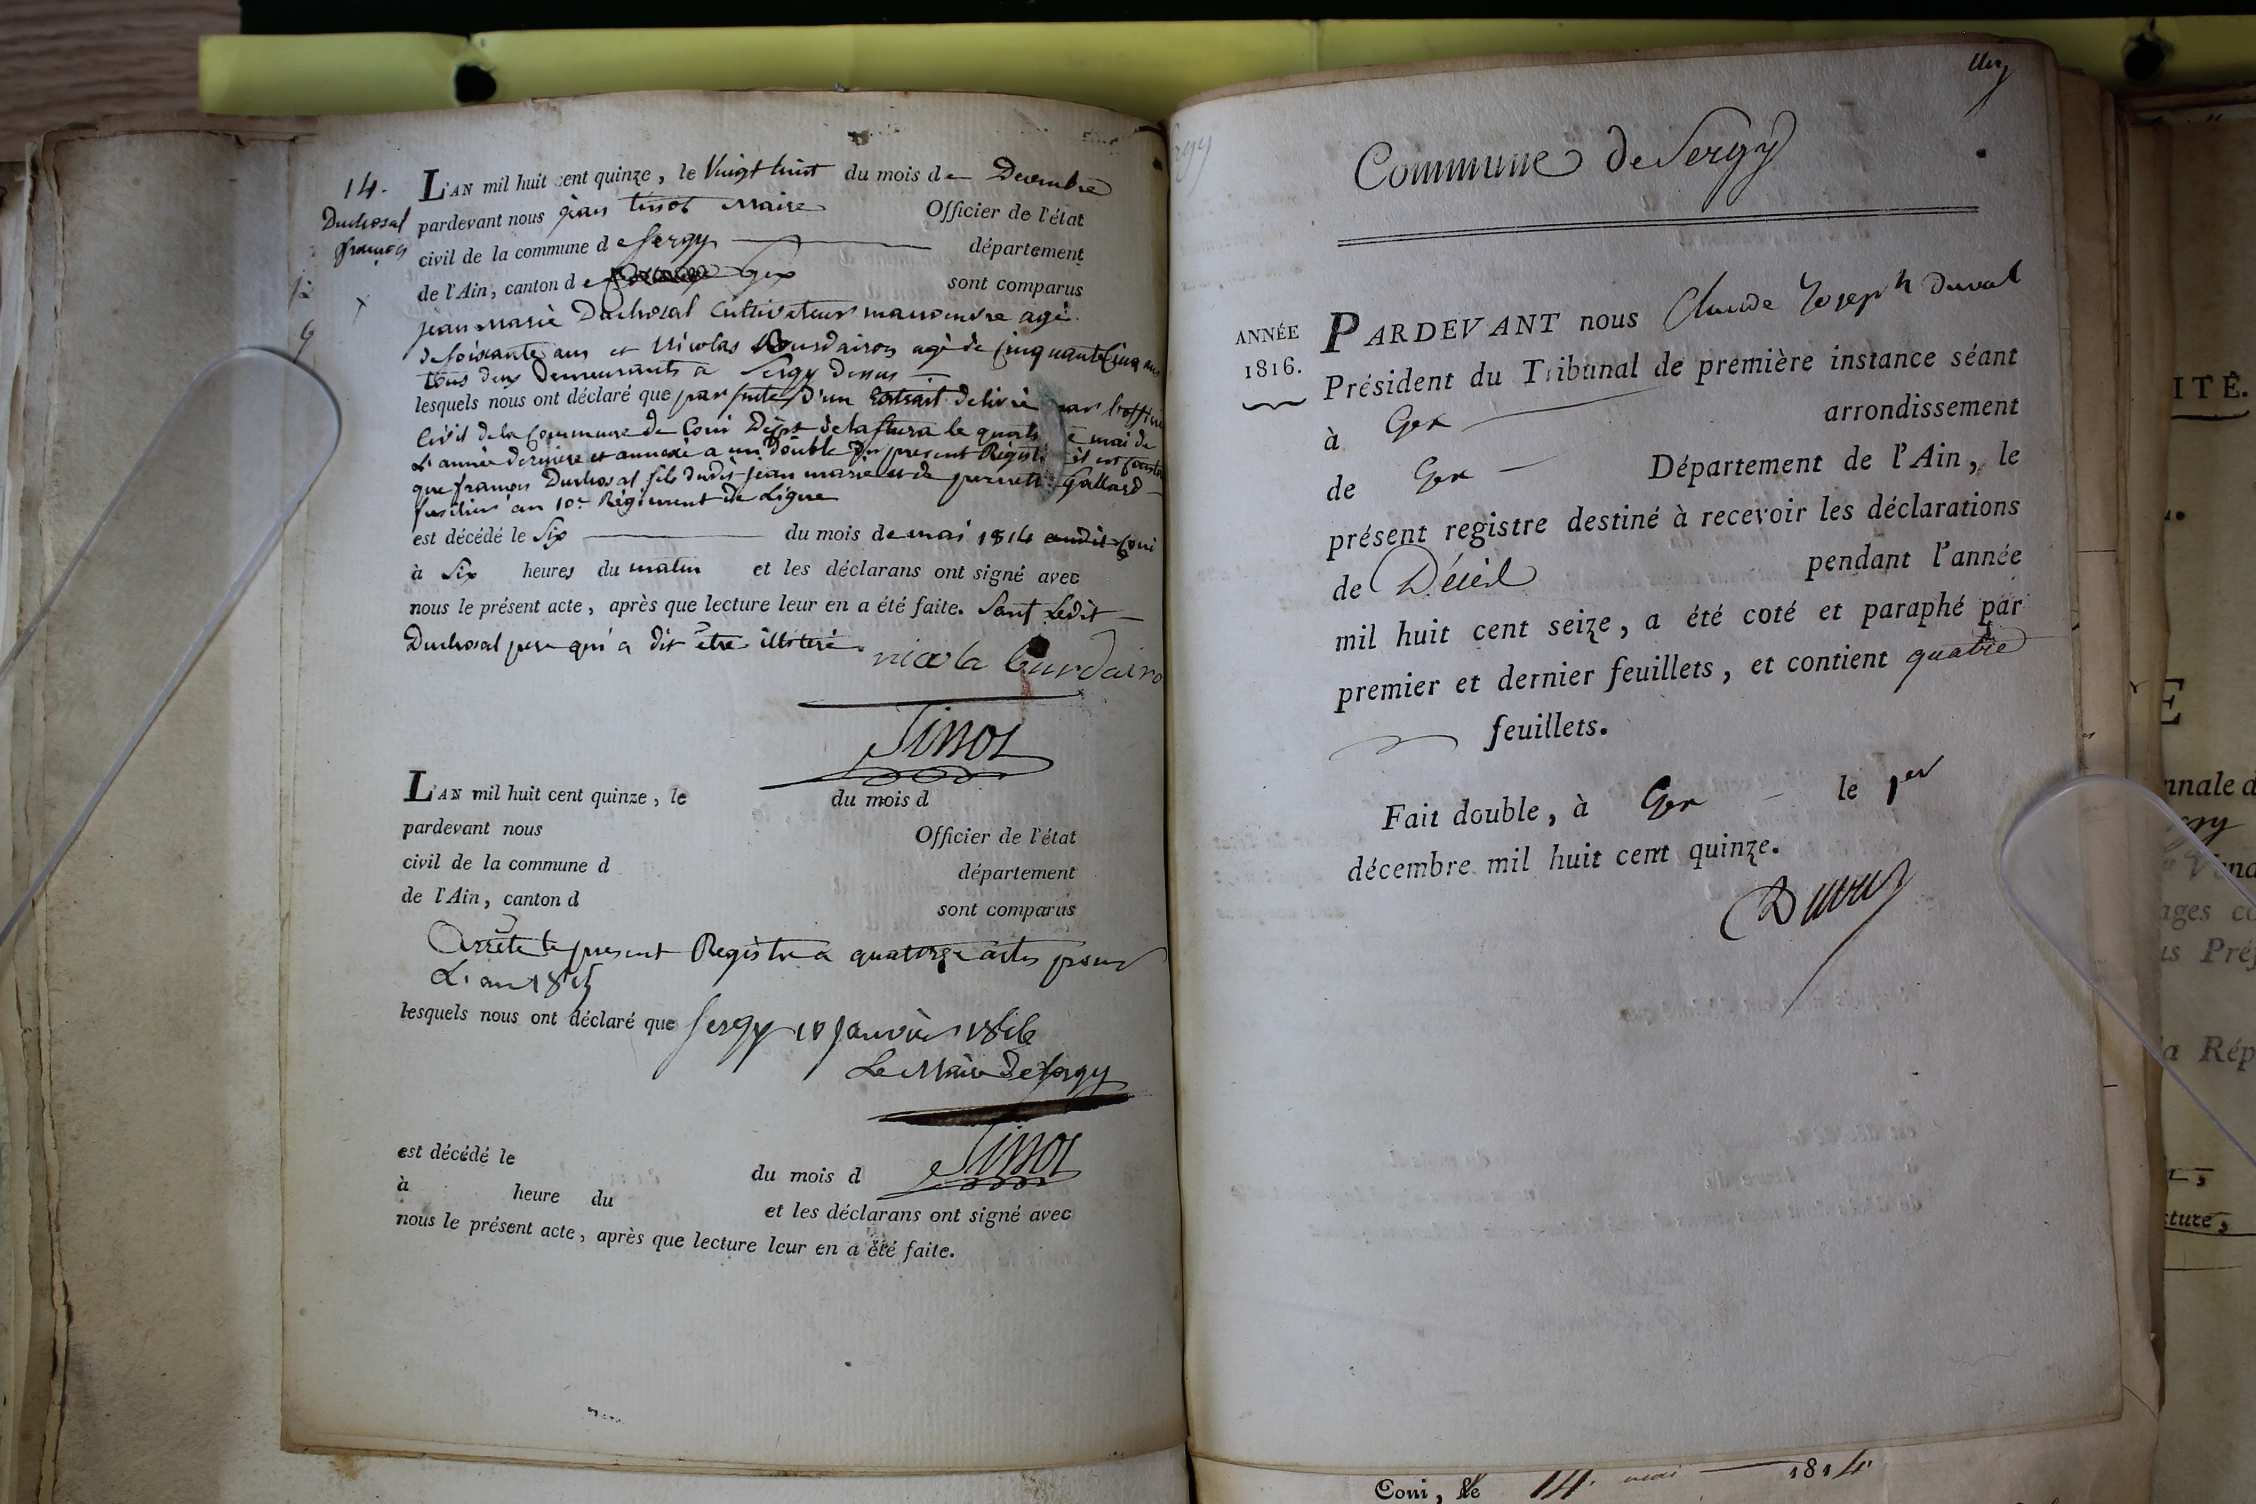 14.
Duchosal
françois
L'AN mil huit cent quinze, le Vingt huit du mois de Decembre
pardevant nous jean tinot Maire Officier de l'état
civil de la commune de Sergy département
de l'Ain, canton de Gex sont comparus
jean marie Duchosal Cultivateur manoeuvre agé
de soixante ans et Nicolas Bourdairon agé de Cinquante Cinq ans
tous deux Demeurants a Sergy Dessus
lesquels nous ont déclaré que par suite d'un Extrait delivré par l'officier
Civil de la Commune de Coni Dépt de la stura le quatorze mai de
L'année derniere et annexé a un Double du present Registre il est
que françois Duchosal fils dudit jean marie et de pernette Gallard
fusilier au 10e Régiment de Ligne
est décédé le Six du mois de mai 1814 audit Coni
à Six heures du matin et les déclarans ont signé avec
nous le présent acte, après que lecture leur en a été faite. Sauf Ledit
Duchosal pere qui a dit être illiteré.
nicola burdairo
Tinot
L'AN mil huit cent quinze, le du mois d
pardevant nous Officier de l'état
civil de la commune d département
de l'Ain, canton d sont comparus
Arrête le present Registre a quatorze actes pour
L'an 1815
lesquels nous ont déclaré que Sergy 1er Janvier 1816
Le Maire de Sergy
Tinot
est décédé le du mois d
à heure du et les déclarans ont signé avec
nous le présent acte, après que lecture leur en a été faite.
Commune de Sergy
ANNÉE
1816.
PARDEVANT nous Claude Joseph Duval
Président du Tribunal de première instance séant
à Gex arrondissement
de Gex Département de l'Ain, le
présent registre destiné à recevoir les déclarations
de Décès pendant l'année
mil huit cent seize, a été coté et paraphé par
premier et dernier feuillets, et contient quatre
feuillets.
Fait double, à Gex le 1er
décembre mil huit cent quinze.
Duval
Coni, le 14. mai 1814
ITÉ.
E
nnale d
ages co
us Préf
la Rép
cture,